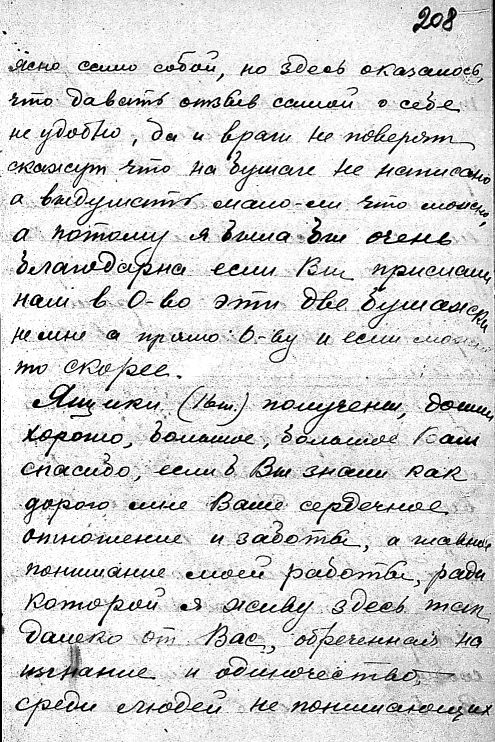 208
ясно само собой, но здесь оказалось,
что давать отзыв самой о себе
не удобно, да и враги не поверят
скажут что на бумаге не написано
а выдумать мало-ли что можно,
а потому я была бы очень
благодарна если Вы прислали
нам в О-во эти две бумажки
не мне а прямо О-ву и если можно
то скорее.
Ящики (16 шт.) получены, дошли
хорошо, большое, большое Вам
спасибо, если б Вы знали как
дорого мне Ваше сердечное
отношение и заботы, а главное
понимание моей работы, ради
которой я живу здесь так
далеко от Вас, обреченная на
изгнание и одиночество,
среди людей не понимающих